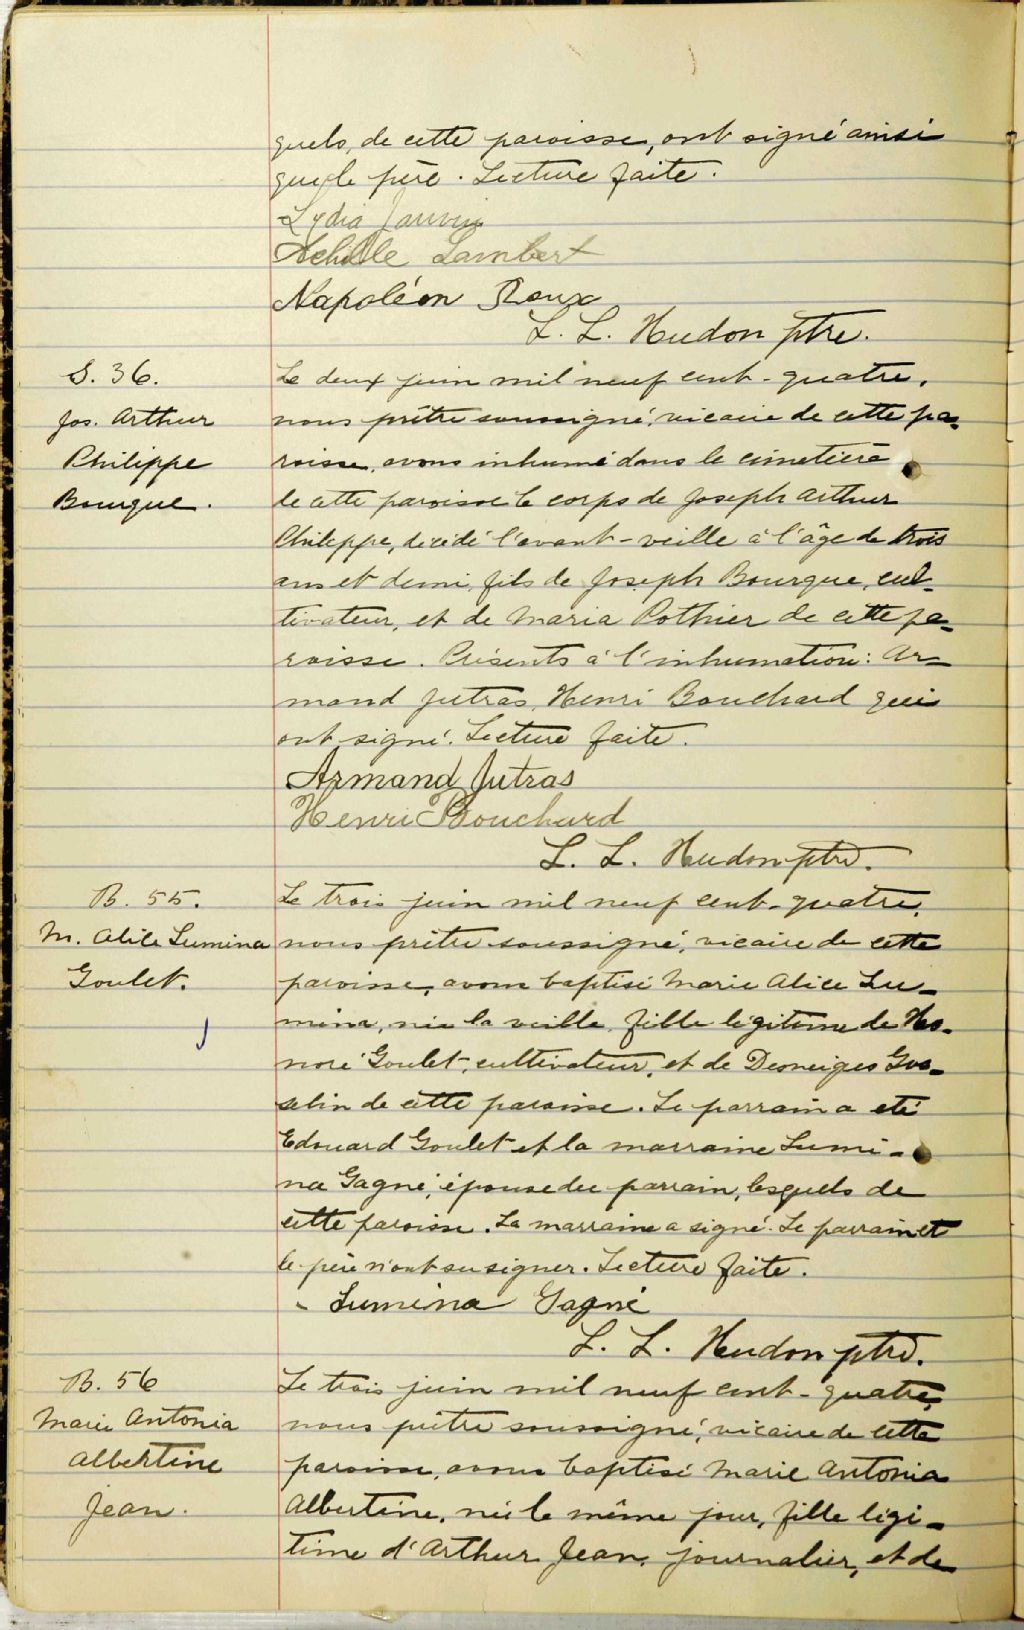 quels, de cette paroisse, ont signé ainsi
que le père. Lecture faite.
Lydia Janvin
Achille Lambert
Napoléon Roux
L. L. Hudon ptre.
S. 36.
Jos. Arthur
Philippe
Bourque.
Le deux juin mil neuf cent-quatre,
nous prêtre soussigné, vicaire de cette pa-
roisse, avons inhumé dans le cimetière
de cette paroisse le corps de Joseph Arthur
Philippe, décédé l'avant-veille à l'âge de trois
ans et demi, fils de Joseph Bourque, cul-
tivateur, et de Maria Pothier de cette pa-
roisse. Présents à l'inhumation: Ar-
mand Jutras, Henri Bouchard qui
ont signé. Lecture faite.
Armand Jutras
Henri Bouchard
L. L. Hudon ptre.
B. 55.
M. Alice Lumina
Goulet.
Le trois juin mil neuf cent-quatre,
nous prêtre soussigné, vicaire de cette
paroisse, avons baptisé Marie Alice Lu-
mina, née la veille, fille légitime de Ho-
noré Goulet, cultivateur, et de Desneiges Gos-
selin de cette paroisse. Le parrain a été
Edouard Goulet et la marraine Lumi-
na Gagné, épouse du parrain, lesquels de
cette paroisse. La marraine a signé. Le parrain et
le père n'ont su signer. Lecture faite.
Lumina Gagné
L. L. Hudon ptre.
B. 56
Marie Antonia
Albertine
Jean.
Le trois juin mil neuf cent-quatre,
nous prêtre soussigné, vicaire de cette
paroisse, avons baptisé Marie Antonia
Albertine, née le même jour, fille légi-
time d'Arthur Jean, journalier, et de